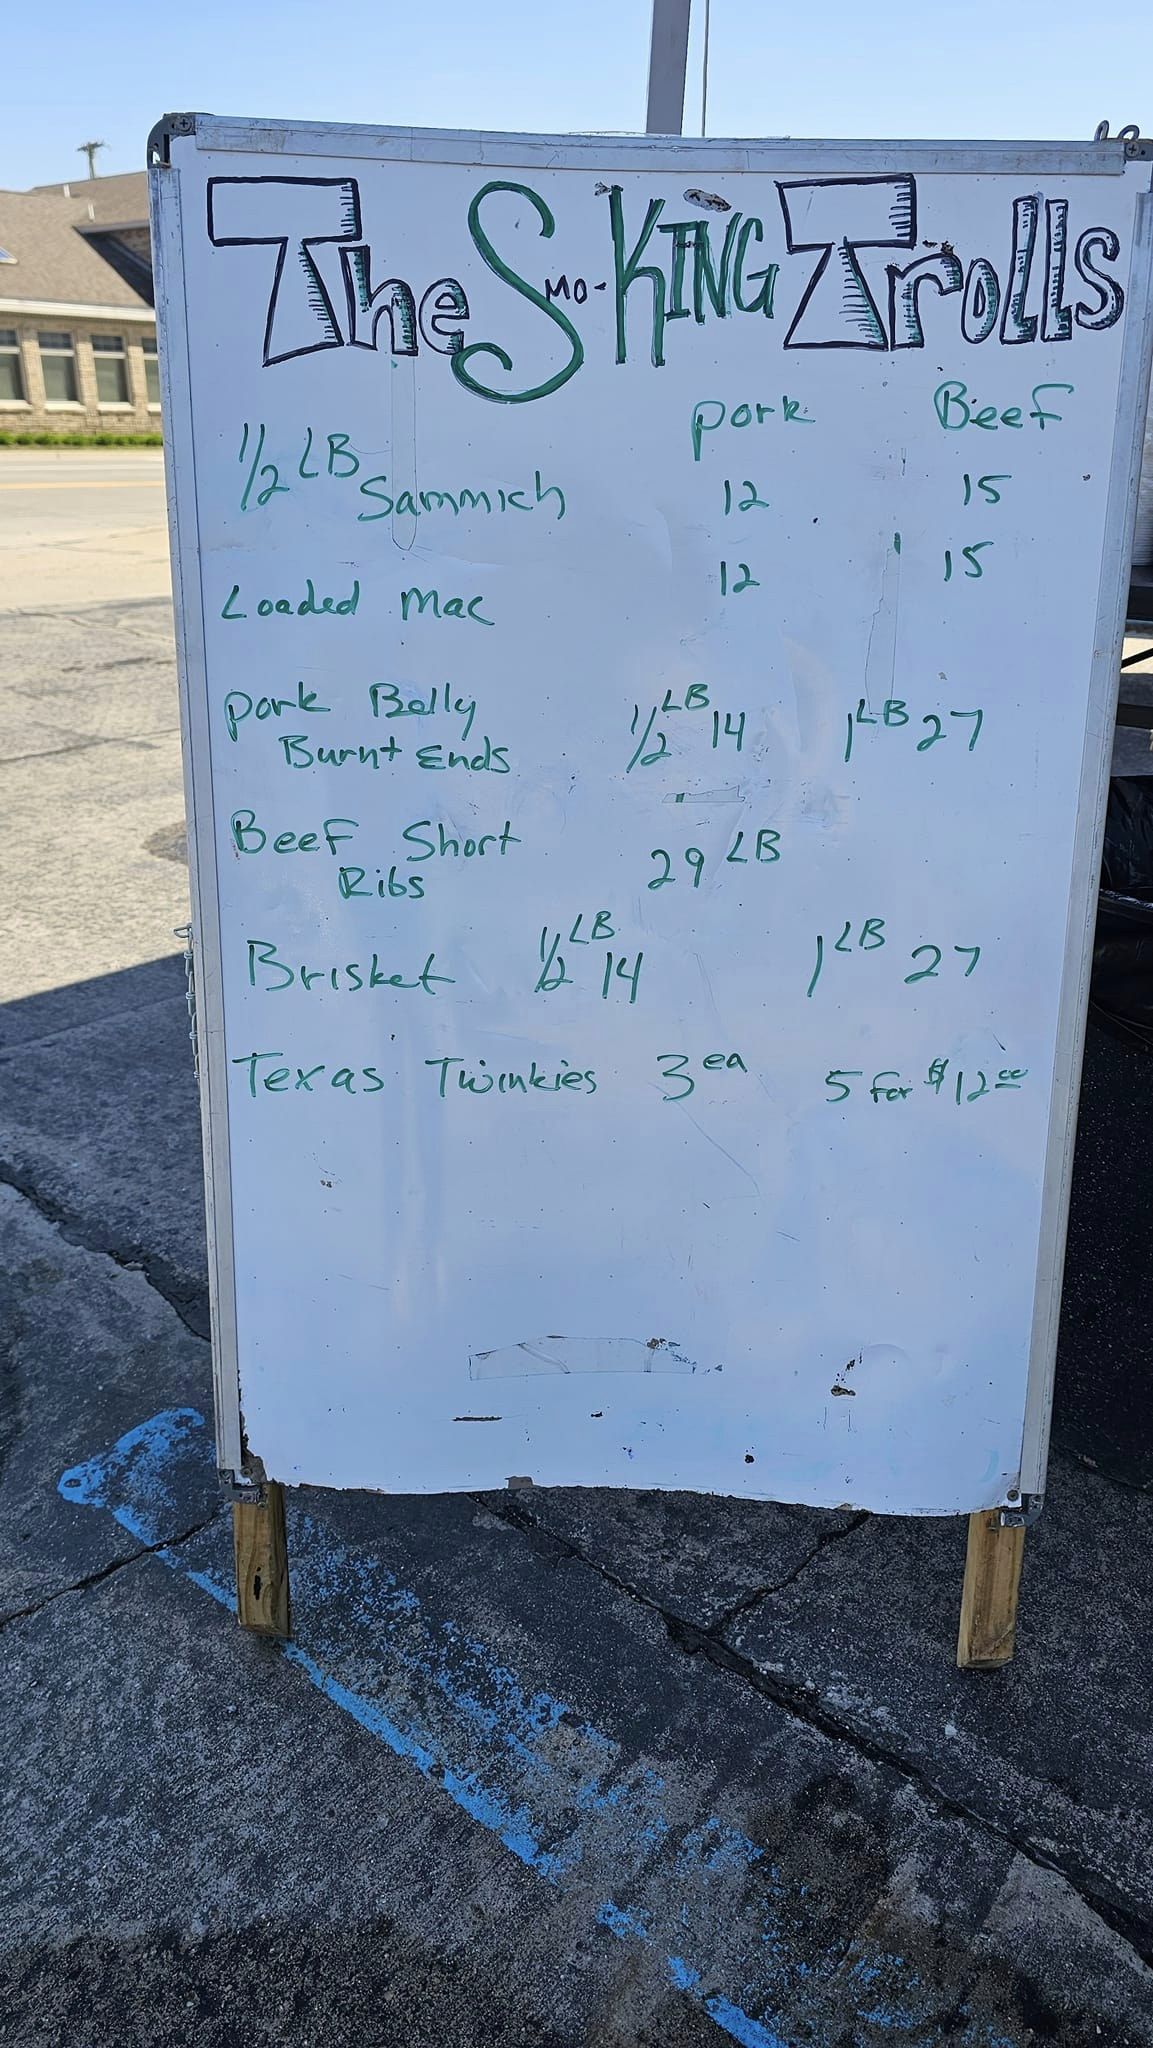 The SMO-KING Trolls
pork Beef
1/2 LB Sammich 12 15
Loaded Mac 12 15
Pork Belly 1/2 LB 14 1 LB 27
Burnt Ends
Beef Short 29 LB
Ribs
Brisket 1/2 LB 14 1 LB 27
Texas Twinkies 3 ea 5 for $12.00